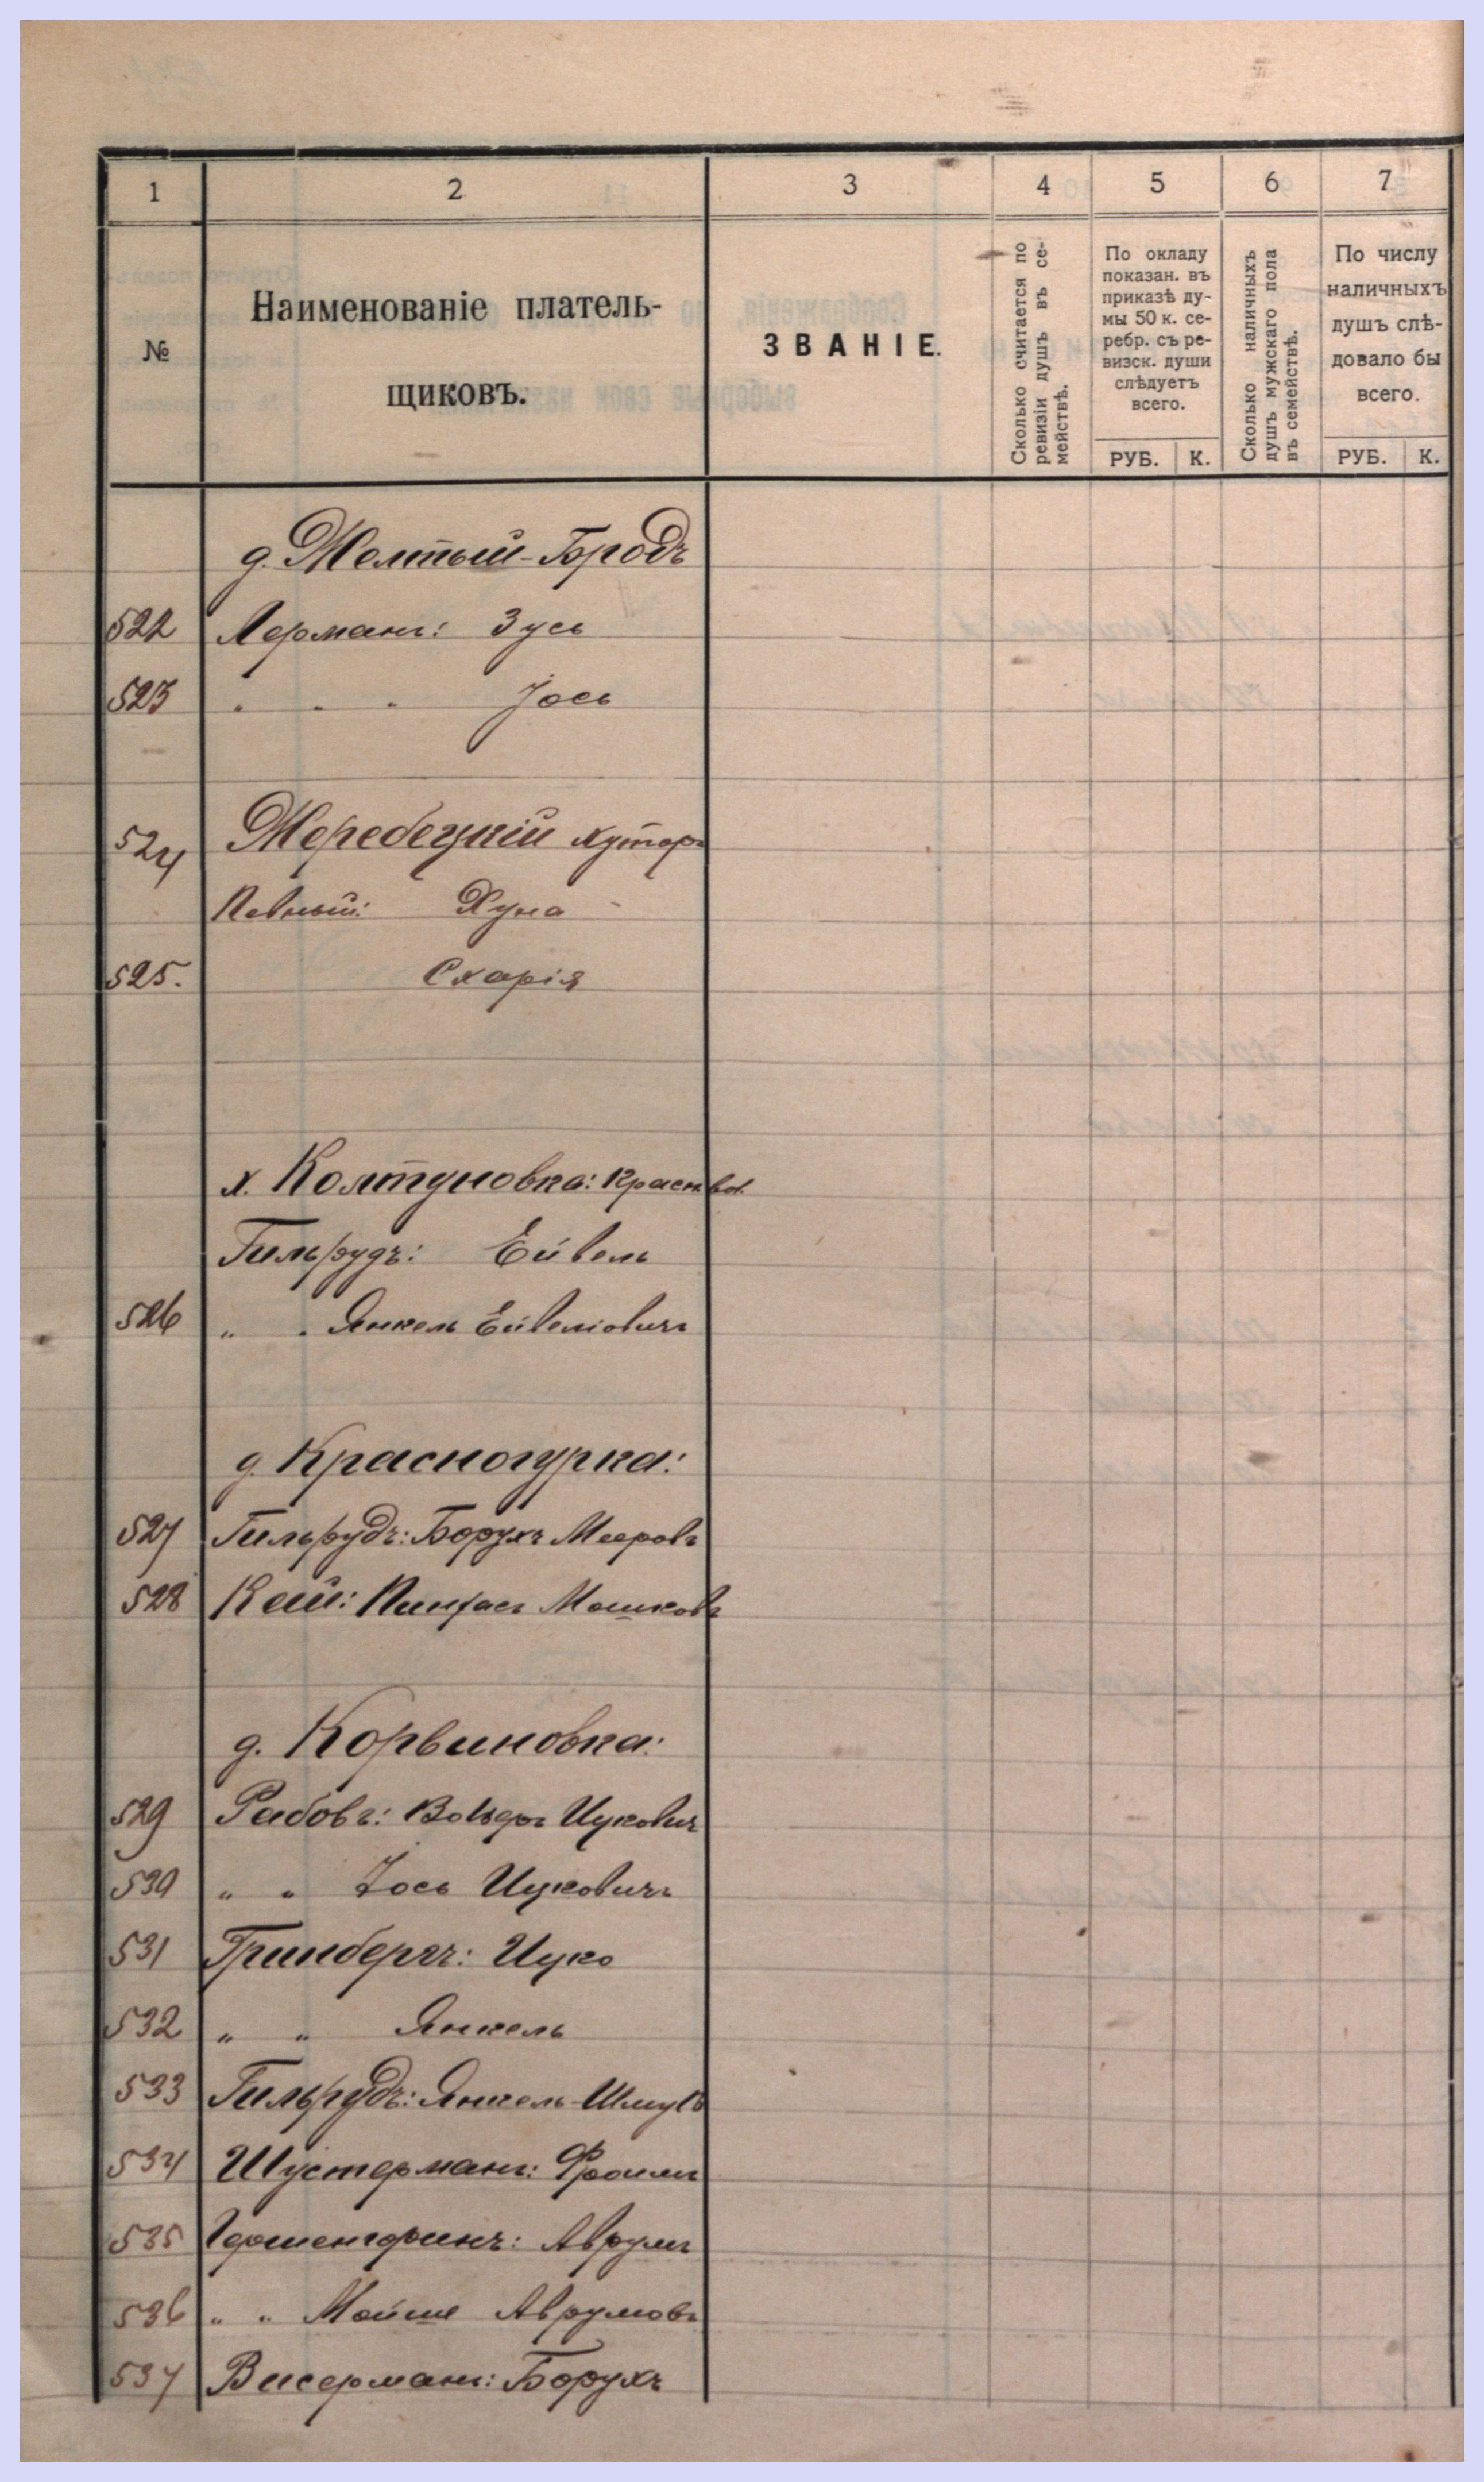 1 2 3 4 5 6 7
№
Наименованіе платель-
щиковъ.
ЗВАНІЕ.
Сколько считается по
ревизіи душъ въ се-
мействѣ.
По окладу
показан. въ
приказѣ ду-
мы 50 к. се-
ребр. съ ре-
визск. души
слѣдуетъ
всего.
РУБ. К.
Сколько наличныхъ
душъ мужскаго пола
въ семействѣ.
По числу
наличныхъ
душъ слѣ-
довало бы
всего.
РУБ. К.
д. Желтый-Бродъ
522 Лерманъ: Зусь
523 " " " Іось
524 Жеребецкій хуторъ
Певный: Хуна
525. Схарія
х. Колтуновка: Краснов.
Гильрудъ: Ейвель
526 " " Янкель Ейвеліовичъ
д. Красногурка:
527 Гильрудъ: Борухъ Мееровъ
528 Кац: Пинхасъ Мошковъ
д. Корвиновка:
529 Рабовъ: Ицковичъ
530 " " Іось Ицковичъ
531 Гринбергъ: Ицко
532 " " Янкель
533 Гильрудъ: Янкель-Шмуль
534 Шустерманъ: Фроимъ
535 Аврумъ
536 " " Мойше Аврумовъ
537 Висерманъ: Борухъ